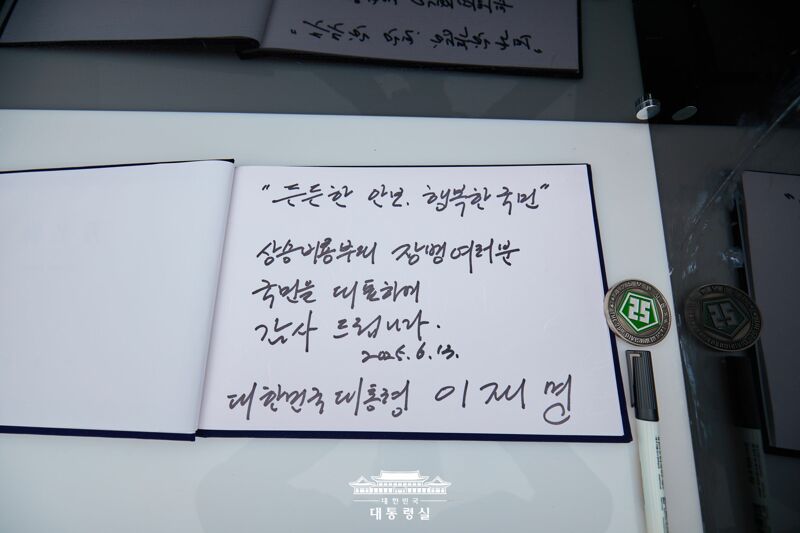 "든든한 안보, 행복한 국민"
상승비룡부대 장병여러분
국민을 대표하여
감사 드립니다.
2025. 6. 13.
대한민국 대통령 이재명
25
대한민국
대통령실